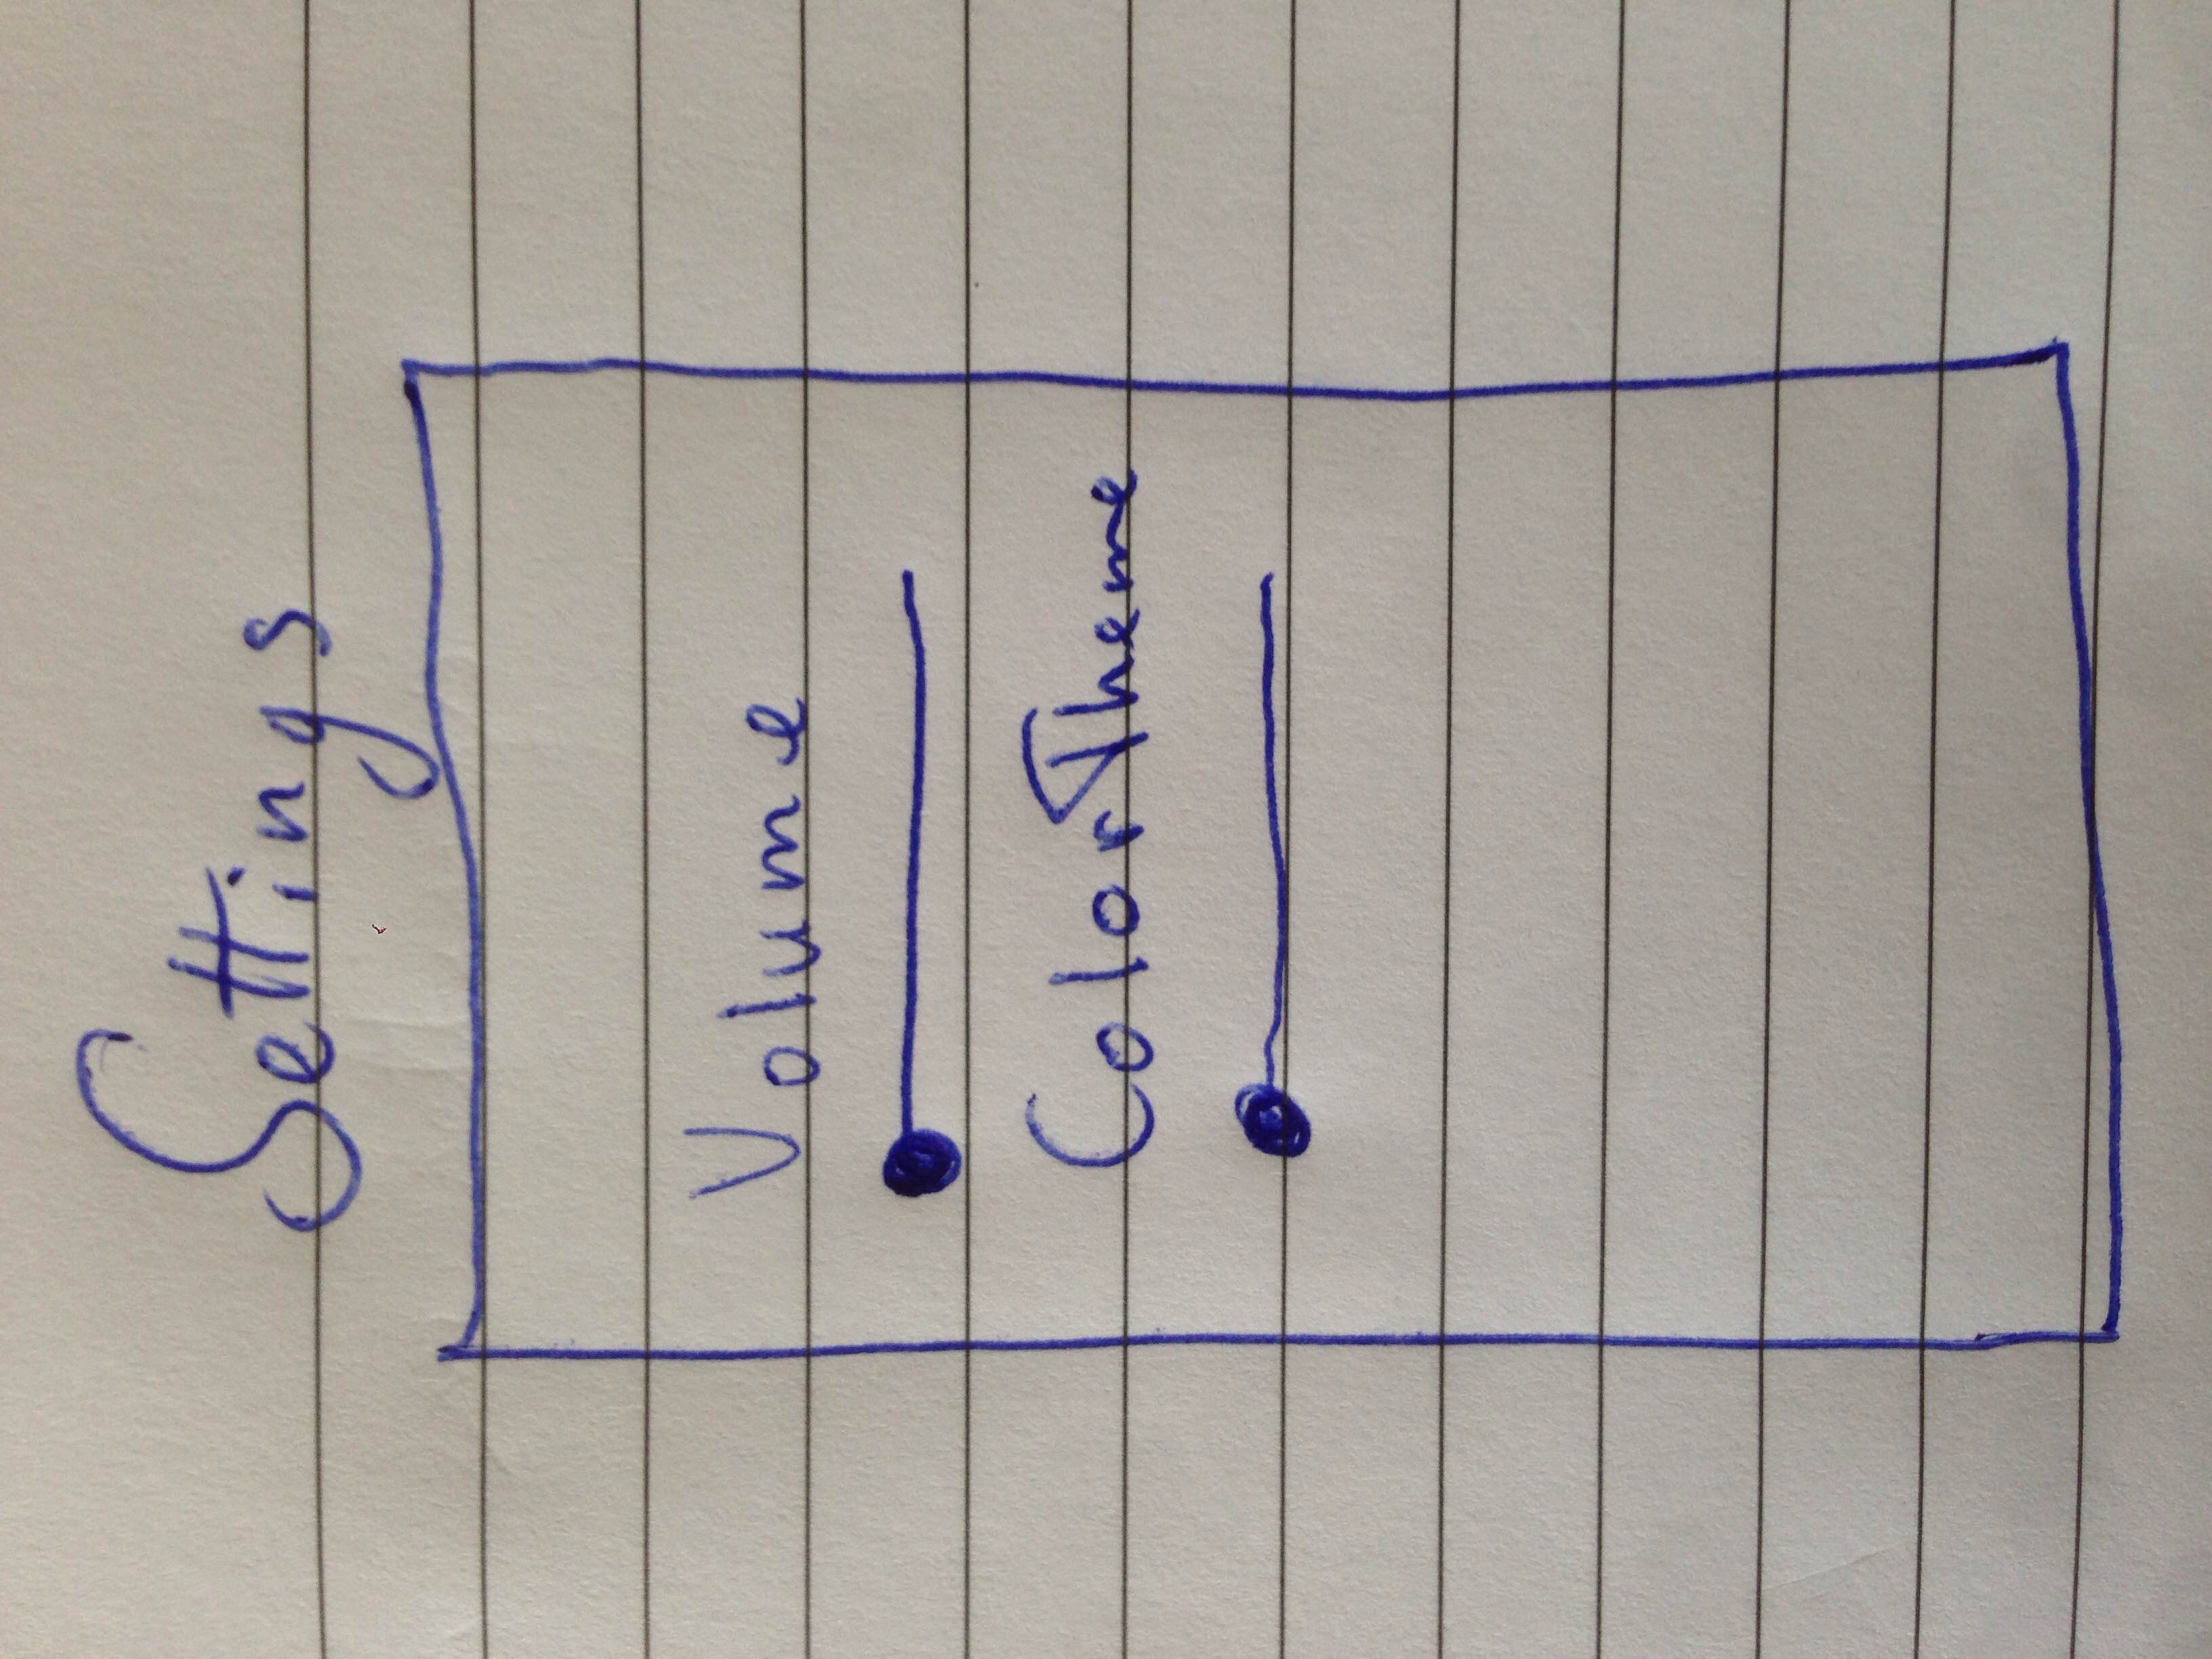 Settings
Volume
Color Theme